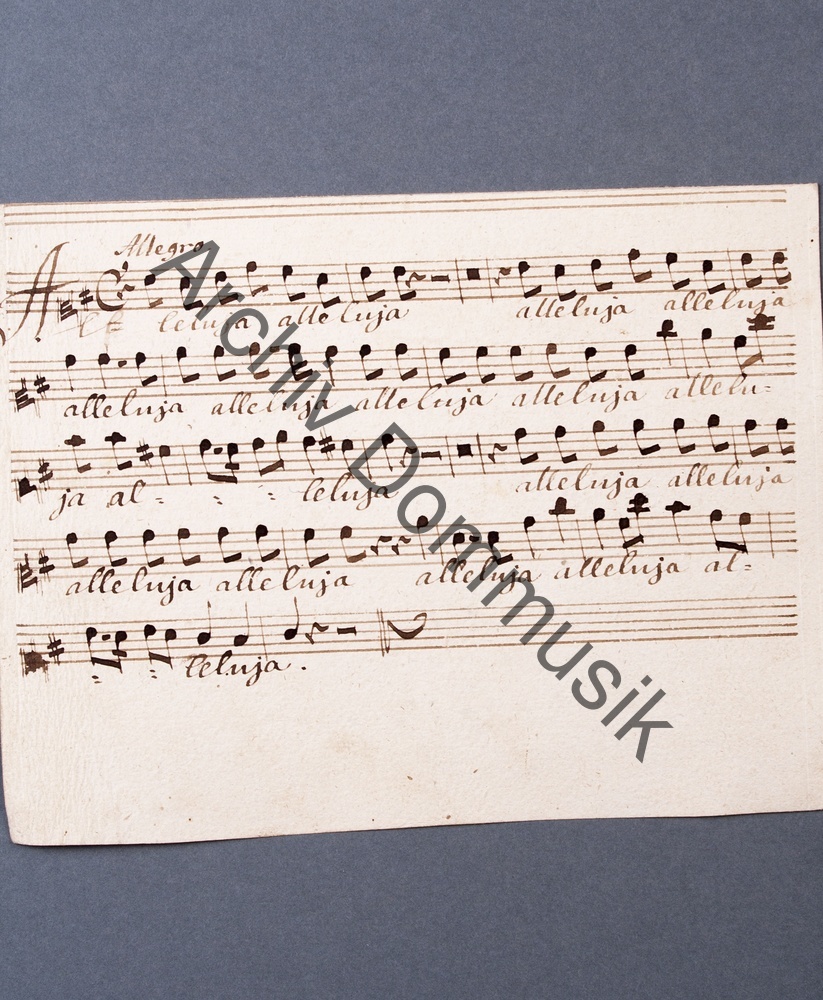 Allegro
Alleluja alleluja alleluja alleluja
alleluja alleluja alleluja alleluja allelu=
ja al= = = leluja alleluja alleluja
alleluja alleluja alleluja alleluja al=
= = leluja.
Archiv Dommusik